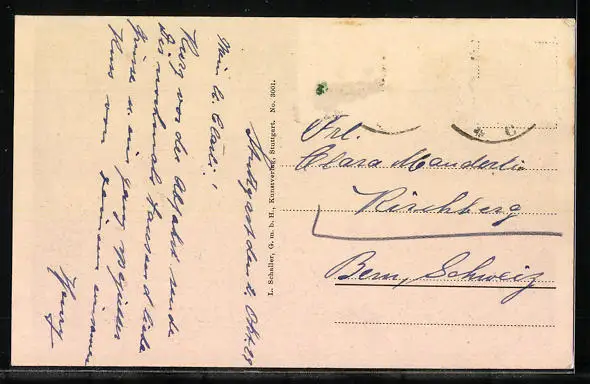 Stuttgart den 2. Okt. 28
Mein lb. Clärli!
Kurz vor der Abfahrt sende
Dir nochmals tausend liebe
Grüsse u. ein ganz
Kuss von Deinem
L. Schaller, G. m. b. H., Kunstverlag, Stuttgart. No. 3001.
Frl.
Clara Manderli
Kirchberg
Bern, Schweiz